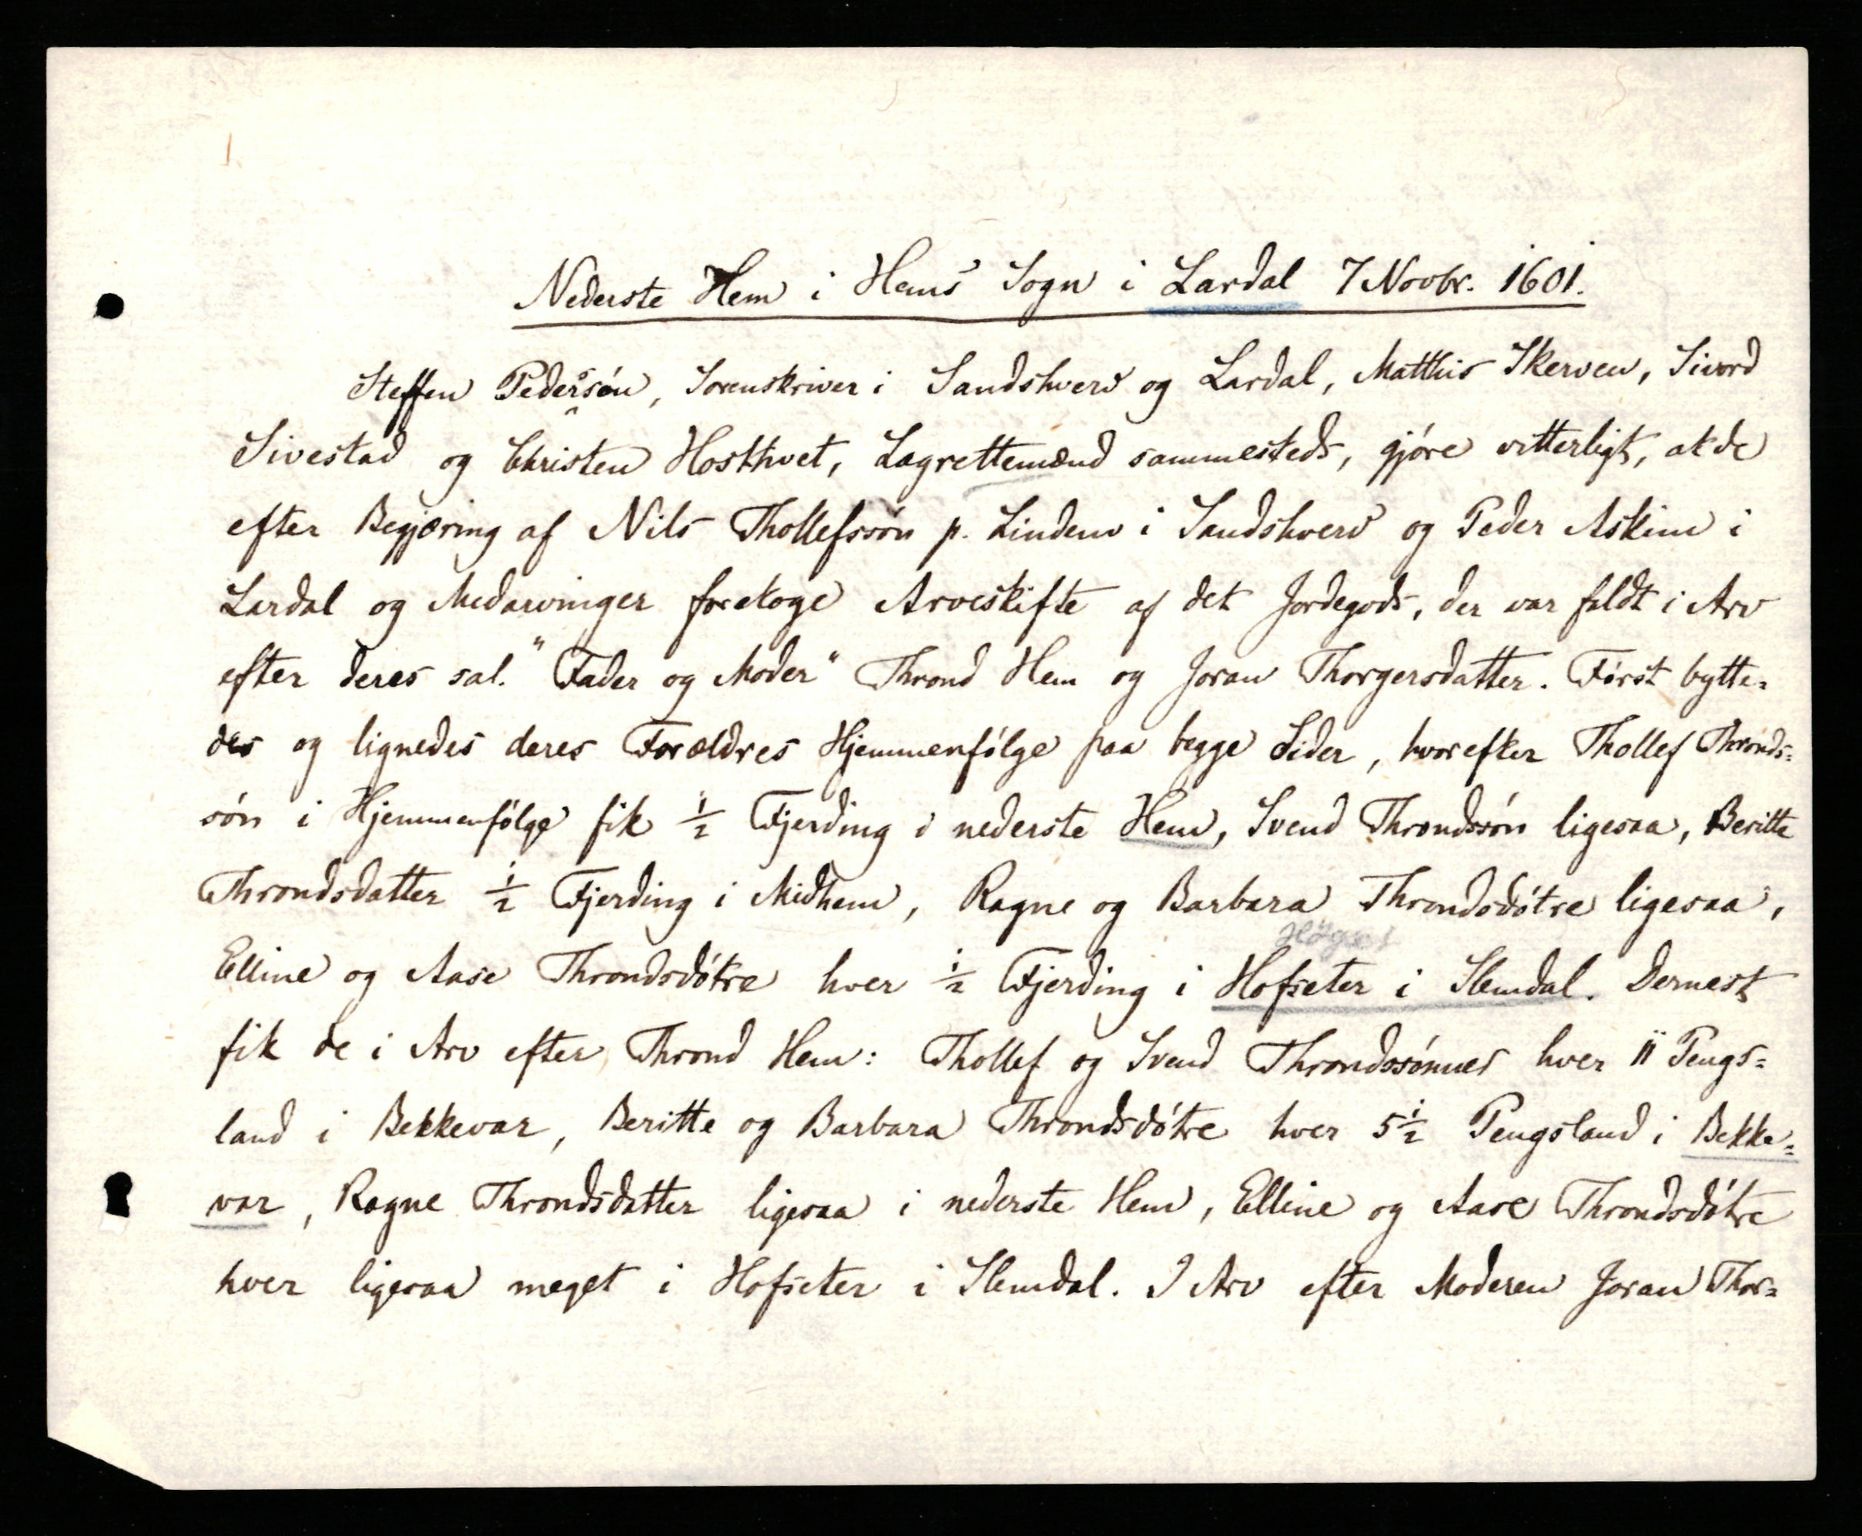 Nederste Hem i Hems Sogn i Lardal 7 Novbr. 1601.
Steffen Pederssön, Sorenskriver i Sandshverv og Lardal, Matthis Skerven, Sivord
Sivestad og Christen Hosthvet, Lagrettemænd sammesteds, gjöre vitterligt, at de
efter Begjæring af Nils Thollefssön p. Linden i Sandshverv og Peder Askim i
Lardal og Medarvinger foretoge Arveskifte af det Jordegods, der var faldt i Arv
efter deres sal. "Fader og Moder" Thrond Hem og Joran Thorgersdatter. Först bytte=
des og lignedes deres Forældres Hjemmenfölge paa begge Sider, hvorefter Thollef Thronds=
sön i Hjemmenfölge fik ½ Fjerding i nederste Hem, Svend Throndssön ligesaa, Beritte
Throndsdatter ½ Fjerding i Midhem, Ragne og Barbara Throndsdötre ligesaa,
Elline og Aase Throndsdötre hver ½ Fjerding i Hofseter i Slemdal. Dernest
fik de i Arv efter Thrond Hem: Thollef og Svend Throndssönner hver 11 Pengs=
land i Bekkevar, Beritte og Barbara Throndsdötre hver 5½ Pengsland i Bekke=
var, Ragne Throndsdatter ligesaa i nederste Hem, Elline og Aase Throndsdötre
hver ligesaa meget i Hofseter i Slemdal. I Arv efter Moderen Joran Thor=